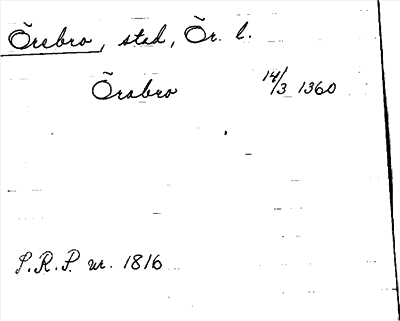 Örebro, stad, Ör. l.
Örabro 14/3 1360
S.R.P. nr. 1816